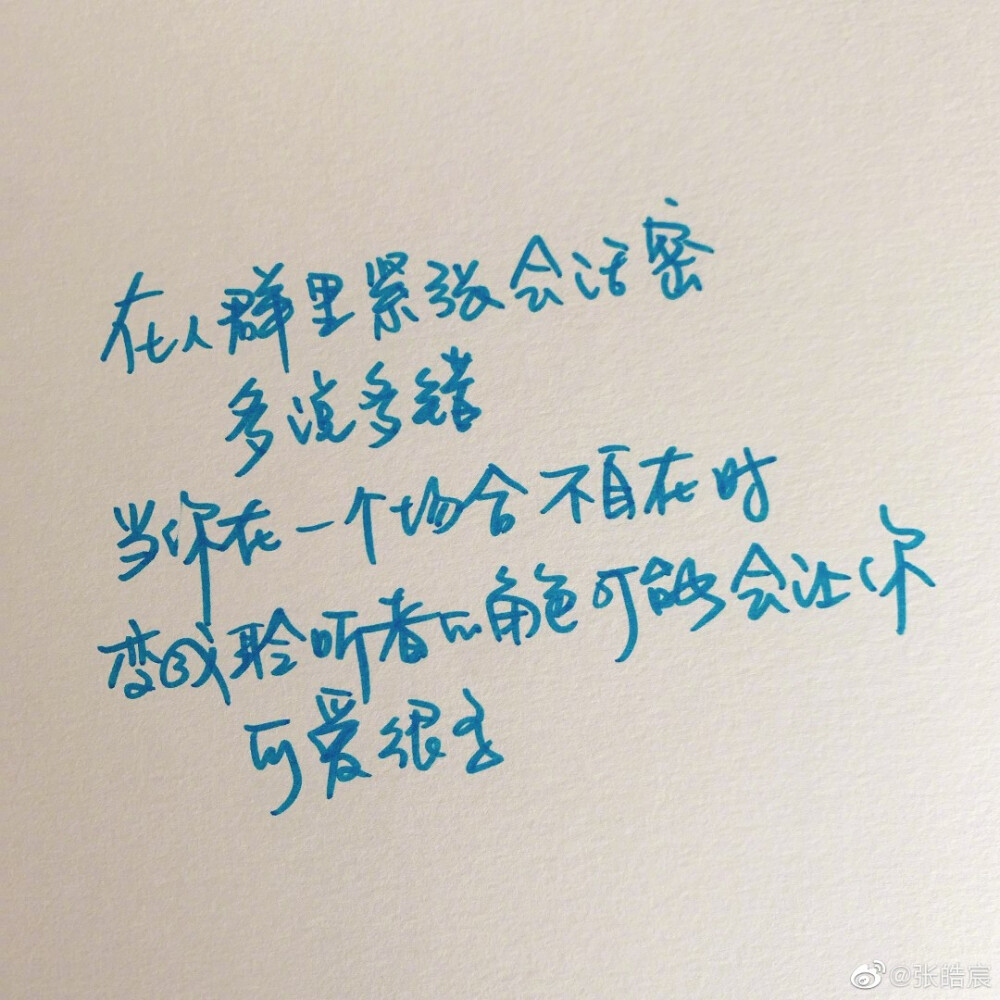 在人群里紧张会话密
多说多错
当你在一个场合不自在时
变成聆听者的角色可能会让你
可爱很多
@张皓宸